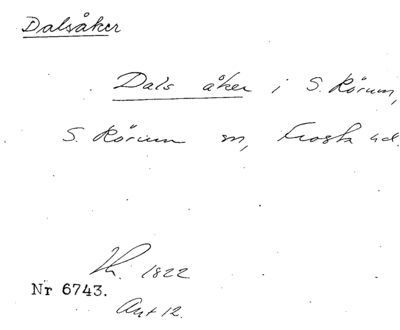 Dalsåker
Dals åker i S. Rörum,
S. Rörum sn, Frosta hd.
1822
Nr 6743.
12.